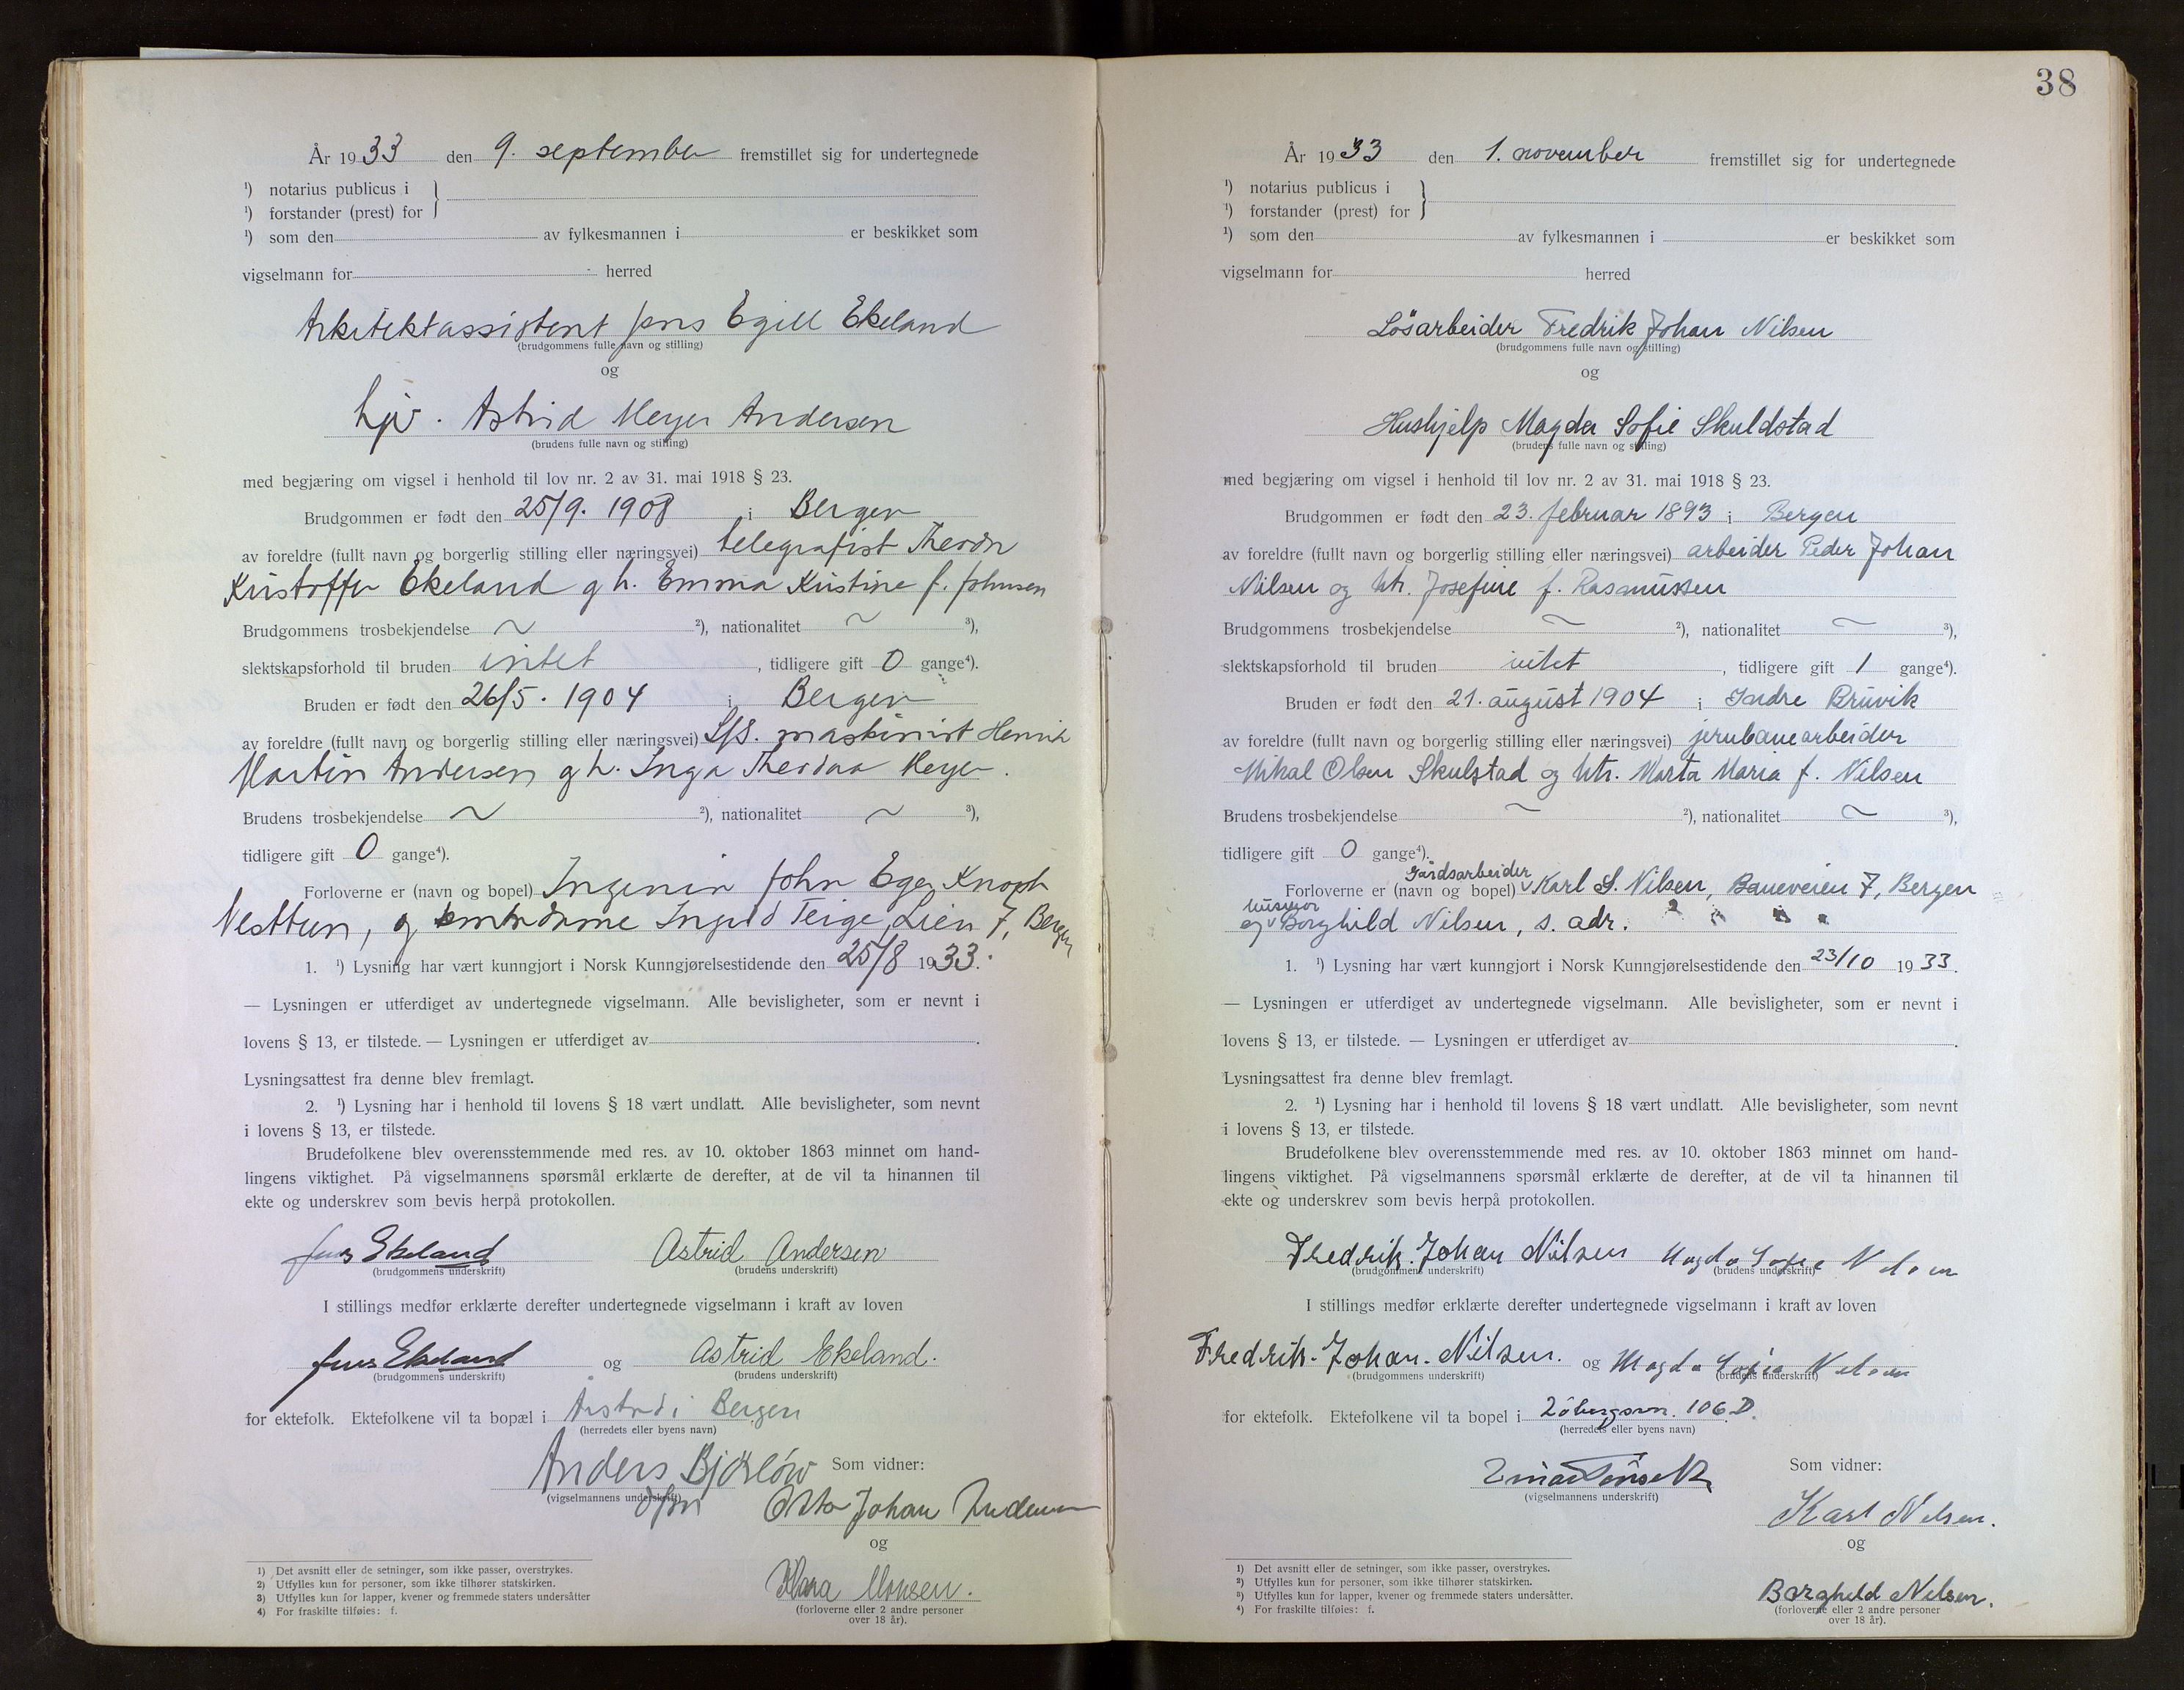 År 1933 den 9. september fremstillet sig for undertegnede
¹) notarius publicus i
¹) forstander (prest) for
¹) som den av fylkesmannen i er beskikket som
vigselmann for herred
Arkitektassistent Jens Egill Ekeland
(brudgommens fulle navn og stilling)
og
hjv. Astrid Meyer Andersen
(brudens fulle navn og stilling)
med begjæring om vigsel i henhold til lov nr. 2 av 31. mai 1918 § 23.
Brudgommen er født den 25/9. 1908 i Bergen
av foreldre (fullt navn og borgerlig stilling eller næringsvei) telegrafist Theodor
Kristoffer Ekeland g h. Emma Kristine f. Johnsen
Brudgommens trosbekjendelse ~ ²), nationalitet ~ ³),
slektskapsforhold til bruden intet , tidligere gift 0 gange⁴).
Bruden er født den 26/5. 1904 i Bergen
av foreldre (fullt navn og borgerlig stilling eller næringsvei) S/S. maskinist Henrik
Martin Andersen g h. Inga Theodora Meyer.
Brudens trosbekjendelse ~ ²), nationalitet ~ ³),
tidligere gift 0 gange⁴).
Forloverne er (navn og bopel) Ingeniør John Eger Knoph
Nesttun, og Ingrid Teige, Lien 7, Bergen
1. ¹) Lysning har vært kunngjort i Norsk Kunngjørelsestidende den 25/8 1933.
— Lysningen er utferdiget av undertegnede vigselmann. Alle bevisligheter, som er nevnt i
lovens § 13, er tilstede. — Lysningen er utferdiget av .
Lysningsattest fra denne blev fremlagt.
2. ¹) Lysning har i henhold til lovens § 18 vært undlatt. Alle bevisligheter, som nevnt
i lovens § 13, er tilstede.
Brudefolkene blev overensstemmende med res. av 10. oktober 1863 minnet om hand-
lingens viktighet. På vigselmannens spørsmål erklærte de derefter, at de vil ta hinannen til
ekte og underskrev som bevis herpå protokollen.
Jens Ekeland Astrid Andersen
(brudgommens underskrift) (brudens underskrift)
I stillings medfør erklærte derefter undertegnede vigselmann i kraft av loven
Jens Ekeland og Astrid Ekeland.
(brudgommens underskrift) (brudens underskrift)
for ektefolk. Ektefolkene vil ta bopæl i Årstad i Bergen
(herredets eller byens navn)
Anders Bjørlow Som vidner:
(vigselmannens underskrift)
Otto Johan Andersen
og
Klara Monsen.
(forloverne eller 2 andre personer
over 18 år).
1) Det avsnitt eller de setninger, som ikke passer, overstrykes.
2) Utfylles kun for personer, som ikke tilhører statskirken.
3) Utfylles kun for lapper, kvener og fremmede staters undersåtter
4) For fraskilte tilføies: f.
38
År 1933 den 1. november fremstillet sig for undertegnede
¹) notarius publicus i
¹) forstander (prest) for
¹) som den av fylkesmannen i er beskikket som
vigselmann for herred
Løsarbeider Fredrik Johan Nilsen
(brudgommens fulle navn og stilling)
og
Hushjelp Magda Sofie Skuldstad
(brudens fulle navn og stilling)
med begjæring om vigsel i henhold til lov nr. 2 av 31. mai 1918 § 23.
Brudgommen er født den 23. februar 1893 i Bergen
av foreldre (fullt navn og borgerlig stilling eller næringsvei) arbeider Peder Johan
Nilsen og htr. Josefine f. Rasmussen
Brudgommens trosbekjendelse ~ ²), nationalitet ~ ³),
slektskapsforhold til bruden intet , tidligere gift 1 gange⁴).
Bruden er født den 21. august 1904 i Indre Bruvik
av foreldre (fullt navn og borgerlig stilling eller næringsvei) jernbanearbeider
Mikal Olsen Skulstad og htr. Marta Maria f. Nilsen
Brudens trosbekjendelse ~ ²), nationalitet ~ ³),
tidligere gift 0 gange⁴).
Gårdsarbeider
Forloverne er (navn og bopel) Karl S. Nilsen, Baneveien 7, Bergen
husmor
og Borghild Nilsen, s. adr.
1. ¹) Lysning har vært kunngjort i Norsk Kunngjørelsestidende den 23/10 1933.
— Lysningen er utferdiget av undertegnede vigselmann. Alle bevisligheter, som er nevnt i
lovens § 13, er tilstede. — Lysningen er utferdiget av .
Lysningsattest fra denne blev fremlagt.
2. ¹) Lysning har i henhold til lovens § 18 vært undlatt. Alle bevisligheter, som nevnt
i lovens § 13, er tilstede.
Brudefolkene blev overensstemmende med res. av 10. oktober 1863 minnet om hand-
lingens viktighet. På vigselmannens spørsmål erklærte de derefter, at de vil ta hinannen til
ekte og underskrev som bevis herpå protokollen.
Fredrik. Johan Nilsen Magda Sofie Nilsen
(brudgommens underskrift) (brudens underskrift)
I stillings medfør erklærte derefter undertegnede vigselmann i kraft av loven
Fredrik. Johan. Nilsen. og Magda Sofie Nilsen
(brudgommens underskrift) (brudens underskrift)
for ektefolk. Ektefolkene vil ta bopel i 106 D.
(herredets eller byens navn)
Som vidner:
(vigselmannens underskrift)
Karl Nilsen.
og
Borghild Nilsen.
(forloverne eller 2 andre personer
over 18 år).
1) Det avsnitt eller de setninger, som ikke passer, overstrykes.
2) Utfylles kun for personer, som ikke tilhører statskirken.
3) Utfylles kun for lapper, kvener og fremmede staters undersåtter.
4) For fraskilte tilføies: f.